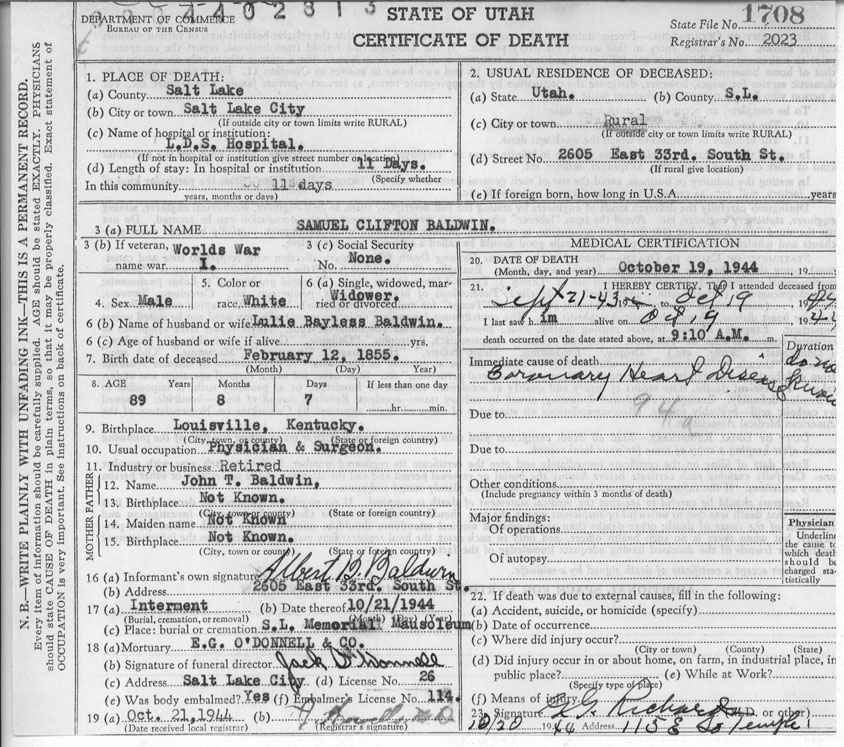 DEPARTMENT OF COMMERCE
BUREAU OF THE CENSUS
STATE OF UTAH
CERTIFICATE OF DEATH
State File No. 1708
Registrar's No. 2023
N. B.—WRITE PLAINLY WITH UNFADING INK—THIS IS A PERMANENT RECORD.
Every item of information should be carefully supplied. AGE should be stated EXACTLY. PHYSICIANS
should state CAUSE OF DEATH in plain terms, so that it may be properly classified. Exact statement of
OCCUPATION is very important. See instructions on back of certificate.
1. PLACE OF DEATH:
(a) County Salt Lake
(b) City or town Salt Lake City
(If outside city or town limits write RURAL)
(c) Name of hospital or institution:
L.D.S. Hospital.
(If not in hospital or institution give street number or location)
(d) Length of stay: In hospital or institution 11 Days.
(Specify whether
In this community 11 days
years, months or days)
2. USUAL RESIDENCE OF DECEASED:
(a) State Utah. (b) County S.L.
(c) City or town Rural
(If outside city or town limits write RURAL)
(d) Street No. 2605 East 33rd. South St.
(If rural give location)
(e) If foreign born, how long in U.S.A. years
3 (a) FULL NAME SAMUEL CLIFTON BALDWIN.
3 (b) If veteran, name war Worlds War I.
3 (c) Social Security No. None.
4. Sex Male
5. Color or race White
6 (a) Single, widowed, married or divorced Widower.
6 (b) Name of husband or wife Lulie Bayless Baldwin.
6 (c) Age of husband or wife if alive yrs.
7. Birth date of deceased February 12, 1855.
(Month) (Day) (Year)
8. AGE Years Months Days If less than one day
89 8 7 hr. min.
9. Birthplace Louisville, Kentucky.
(City, town, or county) (State or foreign country)
10. Usual occupation Physician & Surgeon.
11. Industry or business Retired
FATHER
12. Name John T. Baldwin,
13. Birthplace Not Known.
(City, town or county) (State or foreign country)
MOTHER
14. Maiden name Not Known
15. Birthplace Not Known.
(City, town or county) (State or foreign country)
16 (a) Informant's own signature Albert B. Baldwin
(b) Address 2605 East 33rd. South St.
17 (a) Interment (b) Date thereof 10/21/1944
(Burial, cremation, or removal) (Month) (Day) (Year)
(c) Place: burial or cremation S.L. Memorial Mausoleum
18 (a) Mortuary E.G. O'DONNELL & CO.
(b) Signature of funeral director Jack O'Donnell
(c) Address Salt Lake City (d) License No. 26
(e) Was body embalmed? Yes (f) Embalmer's License No. 114.
19 (a) Oct. 21, 1944 (b)
(Date received local registrar) (Registrar's signature)
MEDICAL CERTIFICATION
20. DATE OF DEATH
(Month, day, and year) October 19, 1944 , 19
21. I HEREBY CERTIFY, That I attended deceased from
Sept 21-43 19 to Oct 19 , 1944
I last saw him alive on Oct, 19 1944
death occurred on the date stated above, at 9:10 A.M.
Immediate cause of death
Coronary Heart Disease
Duration
do not
know
94a
Due to
Due to
Other conditions
(Include pregnancy within 3 months of death)
Major findings:
Of operations
Of autopsy
Physician
Underline
the cause to
which death
should be
charged sta-
tistically
22. If death was due to external causes, fill in the following:
(a) Accident, suicide, or homicide (specify)
(b) Date of occurrence
(c) Where did injury occur?
(City or town) (County) (State)
(d) Did injury occur in or about home, on farm, in industrial place, in
public place? (e) While at Work?
(Specify type of place)
(f) Means of injury
23. Signature L. G. Richards (M.D. or other)
10/20 1944 Address 115 E So Temple